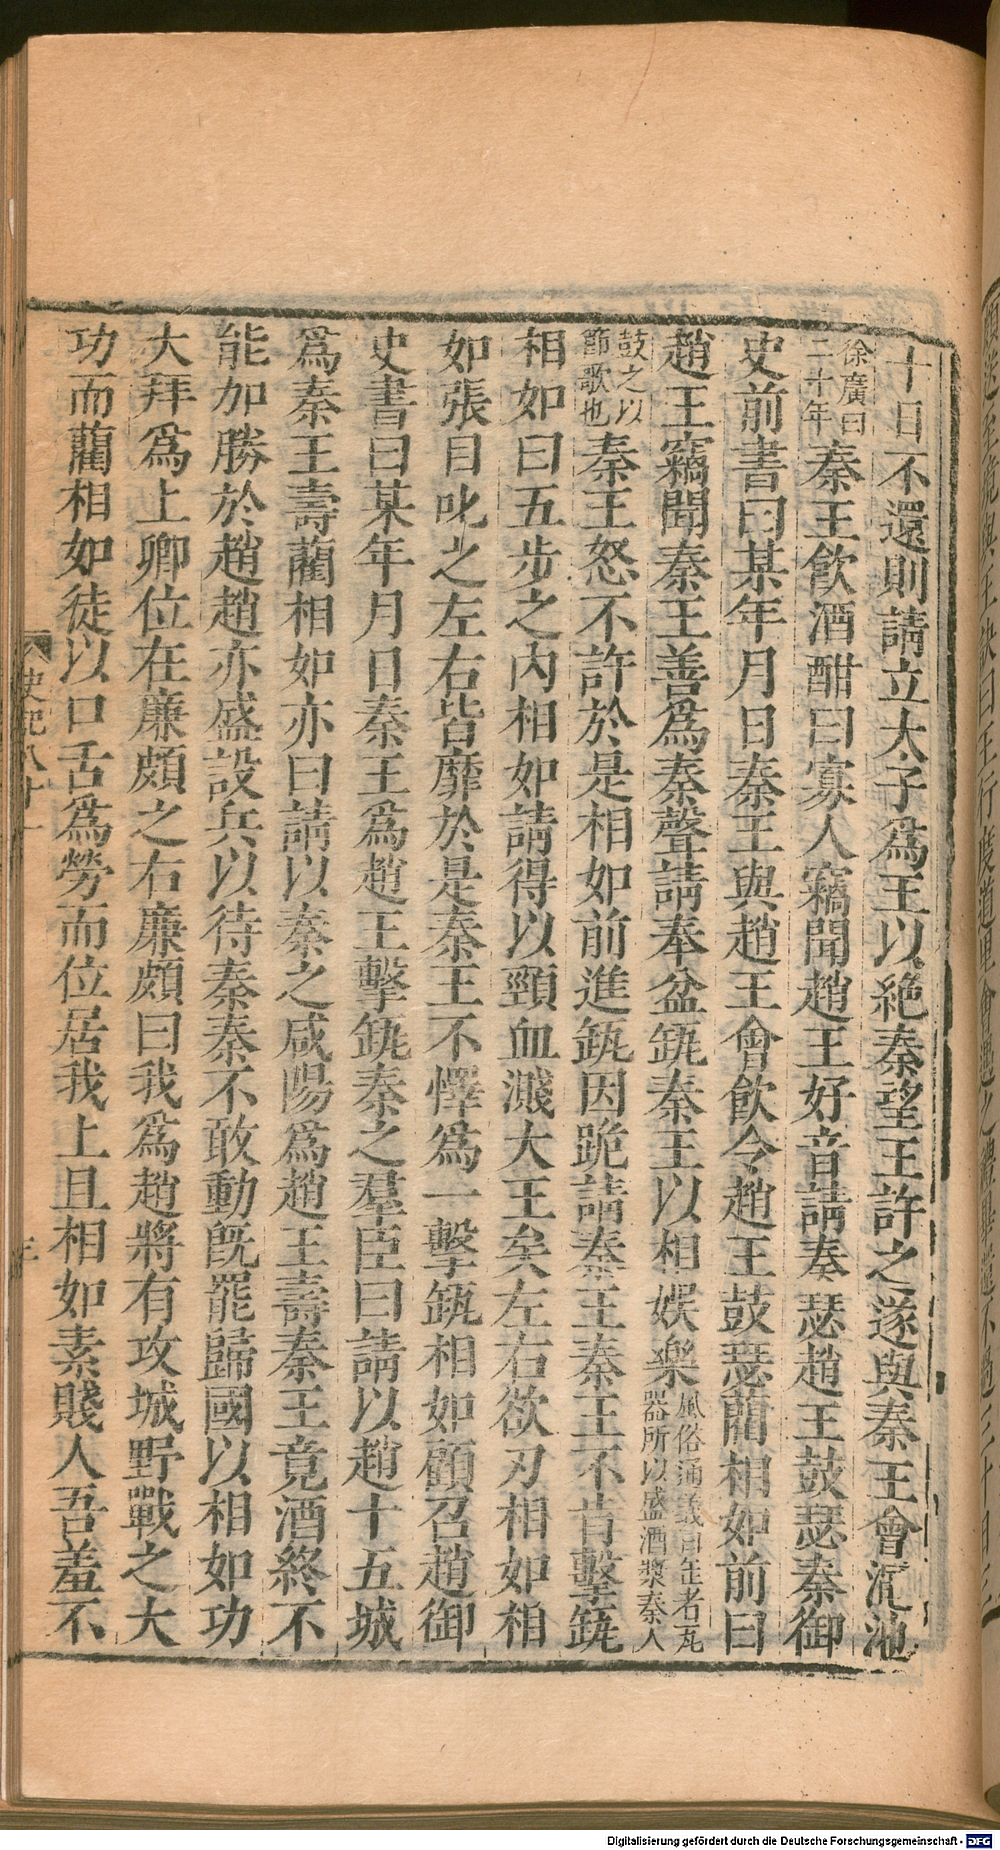 十日不還則請立太子爲王以絶秦望王許之遂與秦王會澠池
徐廣曰
二十年
秦王飮酒酣曰寡人竊聞趙王好音請奏瑟趙王鼓瑟秦御
史前書曰某年月日秦王與趙王會飮令趙王鼓瑟藺相如前曰
趙王竊聞秦王善爲秦聲請奉盆缻秦王以相娯樂
風俗通義曰缶者瓦
器所以盛酒漿秦人
鼓之以
節歌也
秦王怒不許於是相如前進缻因跪請秦王秦王不肯擊缻
相如曰五步之内相如請得以頸血濺大王矣左右欲刃相如相
如張目叱之左右皆靡於是秦王不懌爲一擊缻相如顧召趙御
史書曰某年月日秦王爲趙王擊缻秦之羣臣曰請以趙十五城
爲秦王壽藺相如亦曰請以秦之咸陽爲趙王壽秦王竟酒終不
能加勝於趙趙亦盛設兵以待秦秦不敢動旣罷歸國以相如功
大拜爲上卿位在廉頗之右廉頗曰我爲趙將有攻城野戰之大
功而藺相如徒以口舌爲勞而位居我上且相如素賤人吾羞不
史記八十一
Digitalisierung gefördert durch die Deutsche Forschungsgemeinschaft - DFG